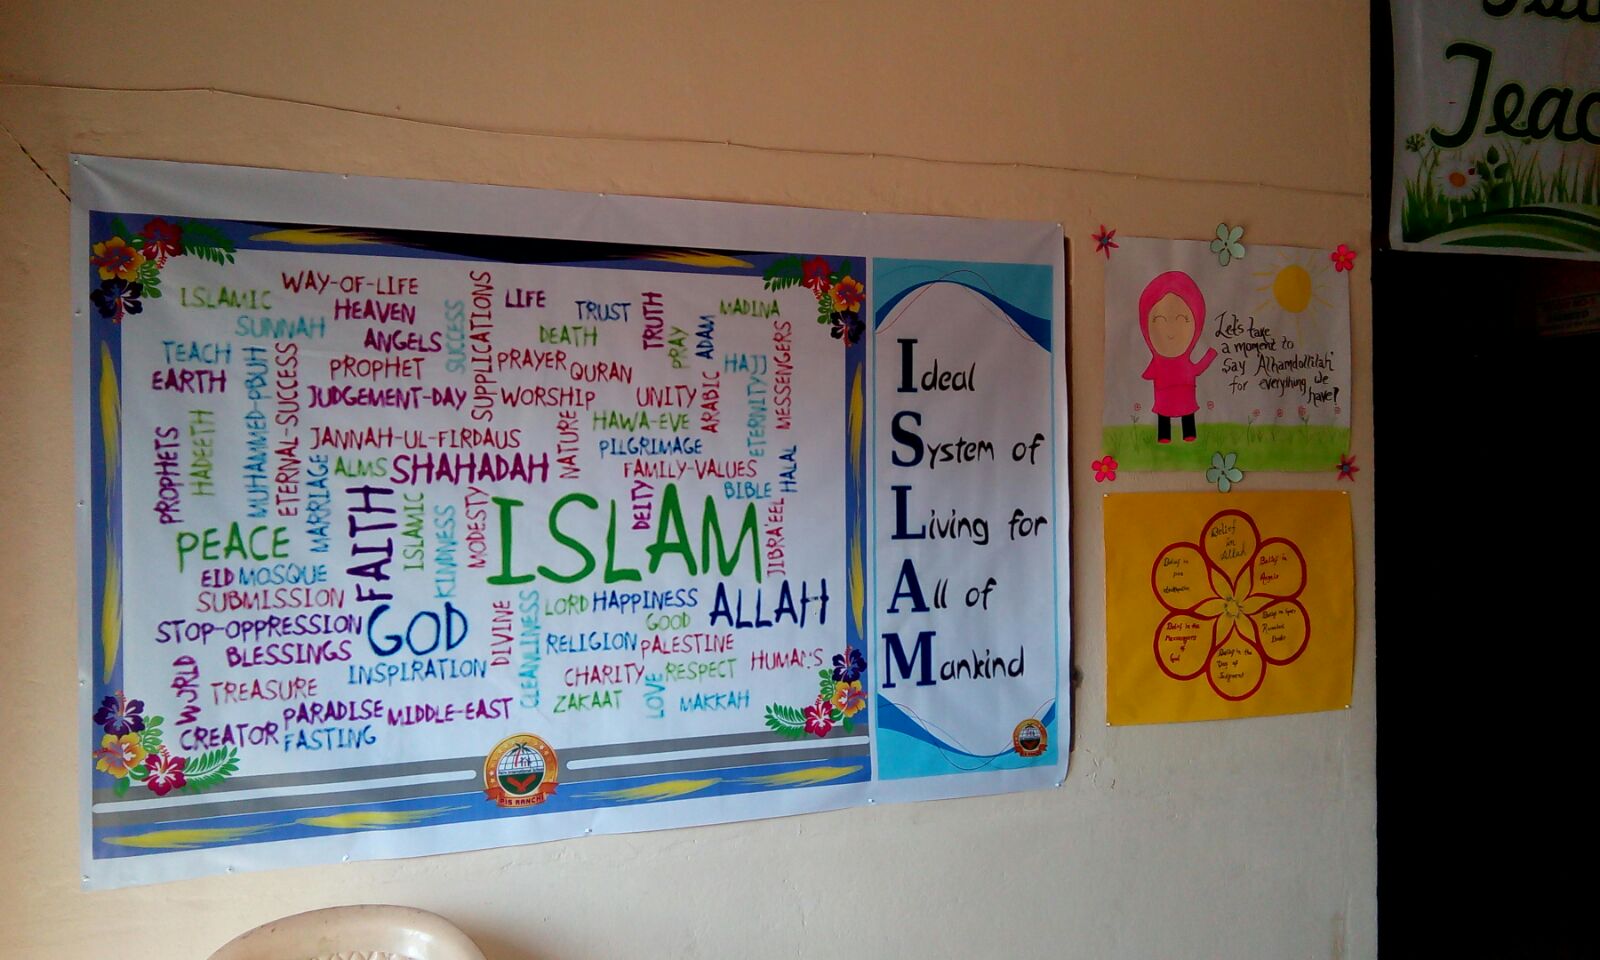 WAY-OF-LIFE
ISLAMIC
HEAVEN
SUNNAH
ANGELS
SUCCESS
SUPPLICATIONS
LIFE
TRUST
DEATH
TRUTH
PRAY
ADAM
MADINA
TEACH
EARTH
PROPHET
PRAYER
QURAN
HAJJ
MESSENGERS
MUHAMMED-PBUH
ETERNAL-SUCCESS
JUDGEMENT-DAY
WORSHIP
UNITY
ARABIC
ETERNITY
HADEETH
PROPHETS
JANNAH-UL-FIRDAUS
NATURE
HAWA-EVE
PILGRIMAGE
HALAL
MARRIAGE
ALMS
SHAHADAH
FAMILY-VALUES
BIBLE
DEITY
FAITH
ISLAMIC
KINDNESS
MODESTY
ISLAM
JIBRA'EEL
PEACE
EID
MOSQUE
SUBMISSION
STOP-OPPRESSION
GOD
DIVINE
CLEANLINESS
LORD
HAPPINESS
ALLAH
GOOD
BLESSINGS
RELIGION
PALESTINE
INSPIRATION
WORLD
TREASURE
CHARITY
RESPECT
HUMANS
ZAKAAT
LOVE
MAKKAH
PARADISE
MIDDLE-EAST
CREATOR
FASTING
DIS RANCHI
Ideal
System of
Living for
All of
Mankind
Let's take
a moment to
Say 'Alhamdollilah'
for everything we
have?
Belief
in
Allah
Belief in
Angels
Belief in the
Day of
Judgment
Belief in the
Messengers
of
God
Teac